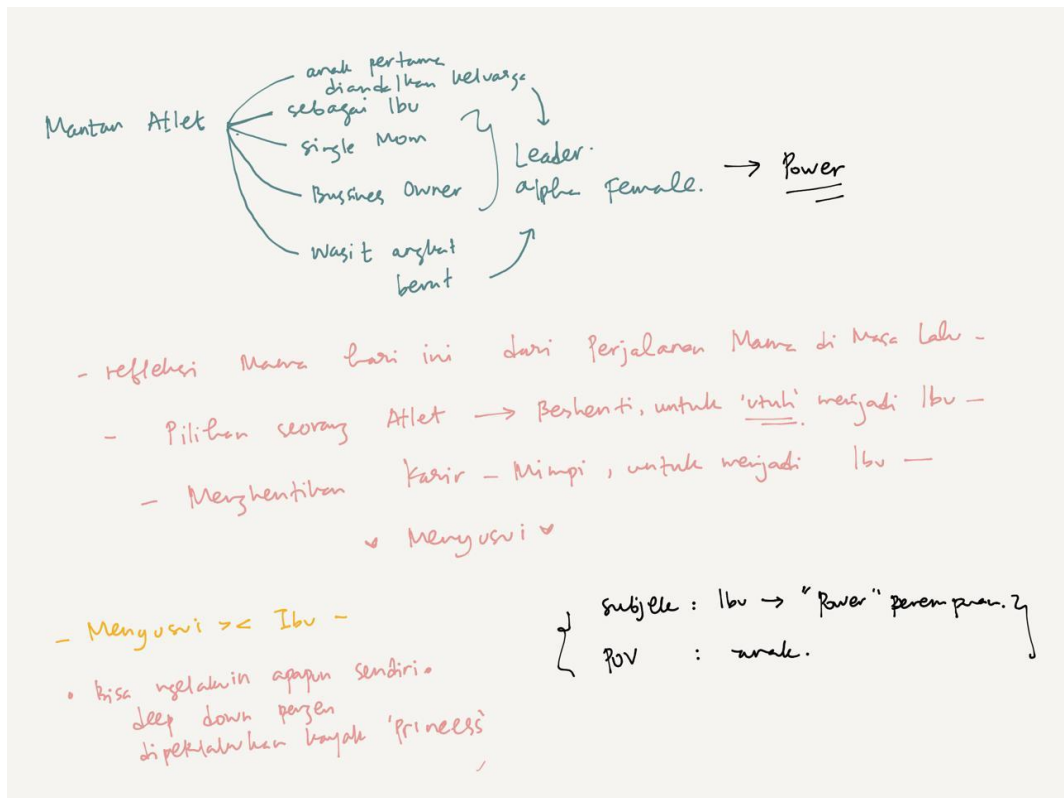 Mantan Atlet
anak pertama
diandalkan keluarga
sebagai Ibu
single Mom
Bussines Owner
Wasit angkat
berat
Leader.
alpha Female.
→ Power
- refleksi Mama hari ini dari Perjalanan Mama di Masa Lalu -
- Pilihan seorang Atlet → Berhenti, untuk 'utuh' menjadi Ibu -
- Menghentikan Karir - Mimpi, untuk menjadi Ibu -
Menyusui
- Menyusui >< Ibu -
• Bisa ngelakuin apapun sendiri.
deep down pengen
diperlakukan kayak 'princess'
subjek : Ibu → "Power" perempuan.
POV : anak.